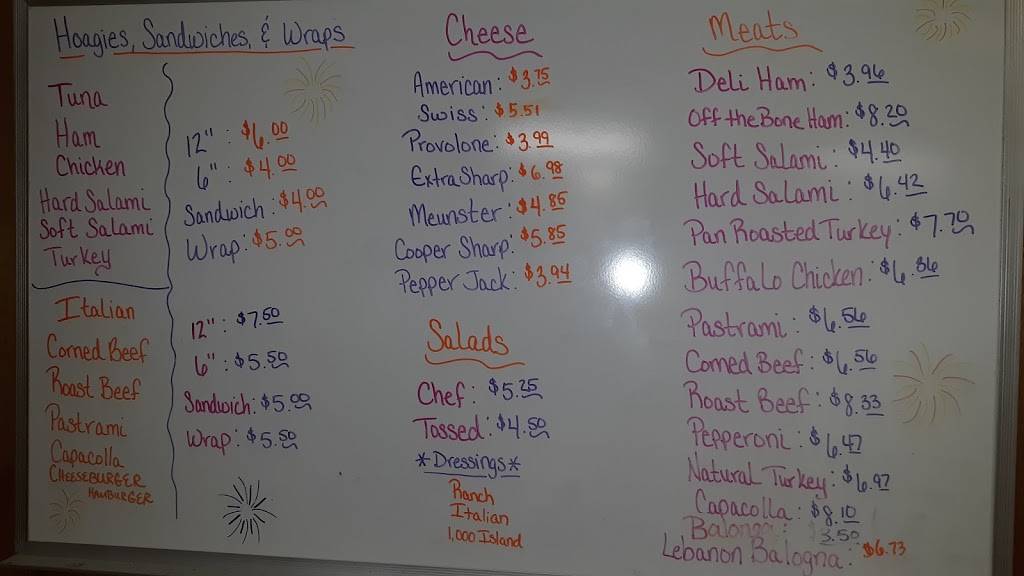 Hoagies, Sandwiches, & Wraps
Tuna
Ham
Chicken
Hard Salami
Soft Salami
Turkey
12" : $6.00
6" : $4.00
Sandwich : $4.00
Wrap : $5.00
Italian
Corned Beef
Roast Beef
Pastrami
Capacolla
CHEESEBURGER
HAMBURGER
12" : $7.50
6" : $5.50
Sandwich: $5.00
Wrap: $5.50
Cheese
American: $3.75
Swiss: $5.51
Provolone: $3.99
Extra Sharp: $6.98
Meunster: $4.85
Cooper Sharp: $5.85
Pepper Jack: $3.94
Salads
Chef: $5.25
Tossed: $4.50
*Dressings*
Ranch
Italian
1,000 Island
Meats
Deli Ham: $3.96
Off the Bone Ham: $8.20
Soft Salami: $4.40
Hard Salami: $6.42
Pan Roasted Turkey: $7.70
Buffalo Chicken: $6.86
Pastrami: $6.56
Corned Beef: $6.56
Roast Beef: $8.33
Pepperoni: $6.47
Natural Turkey: $6.97
Capacolla: $8.10
3.50
Lebanon Balogna: $6.73